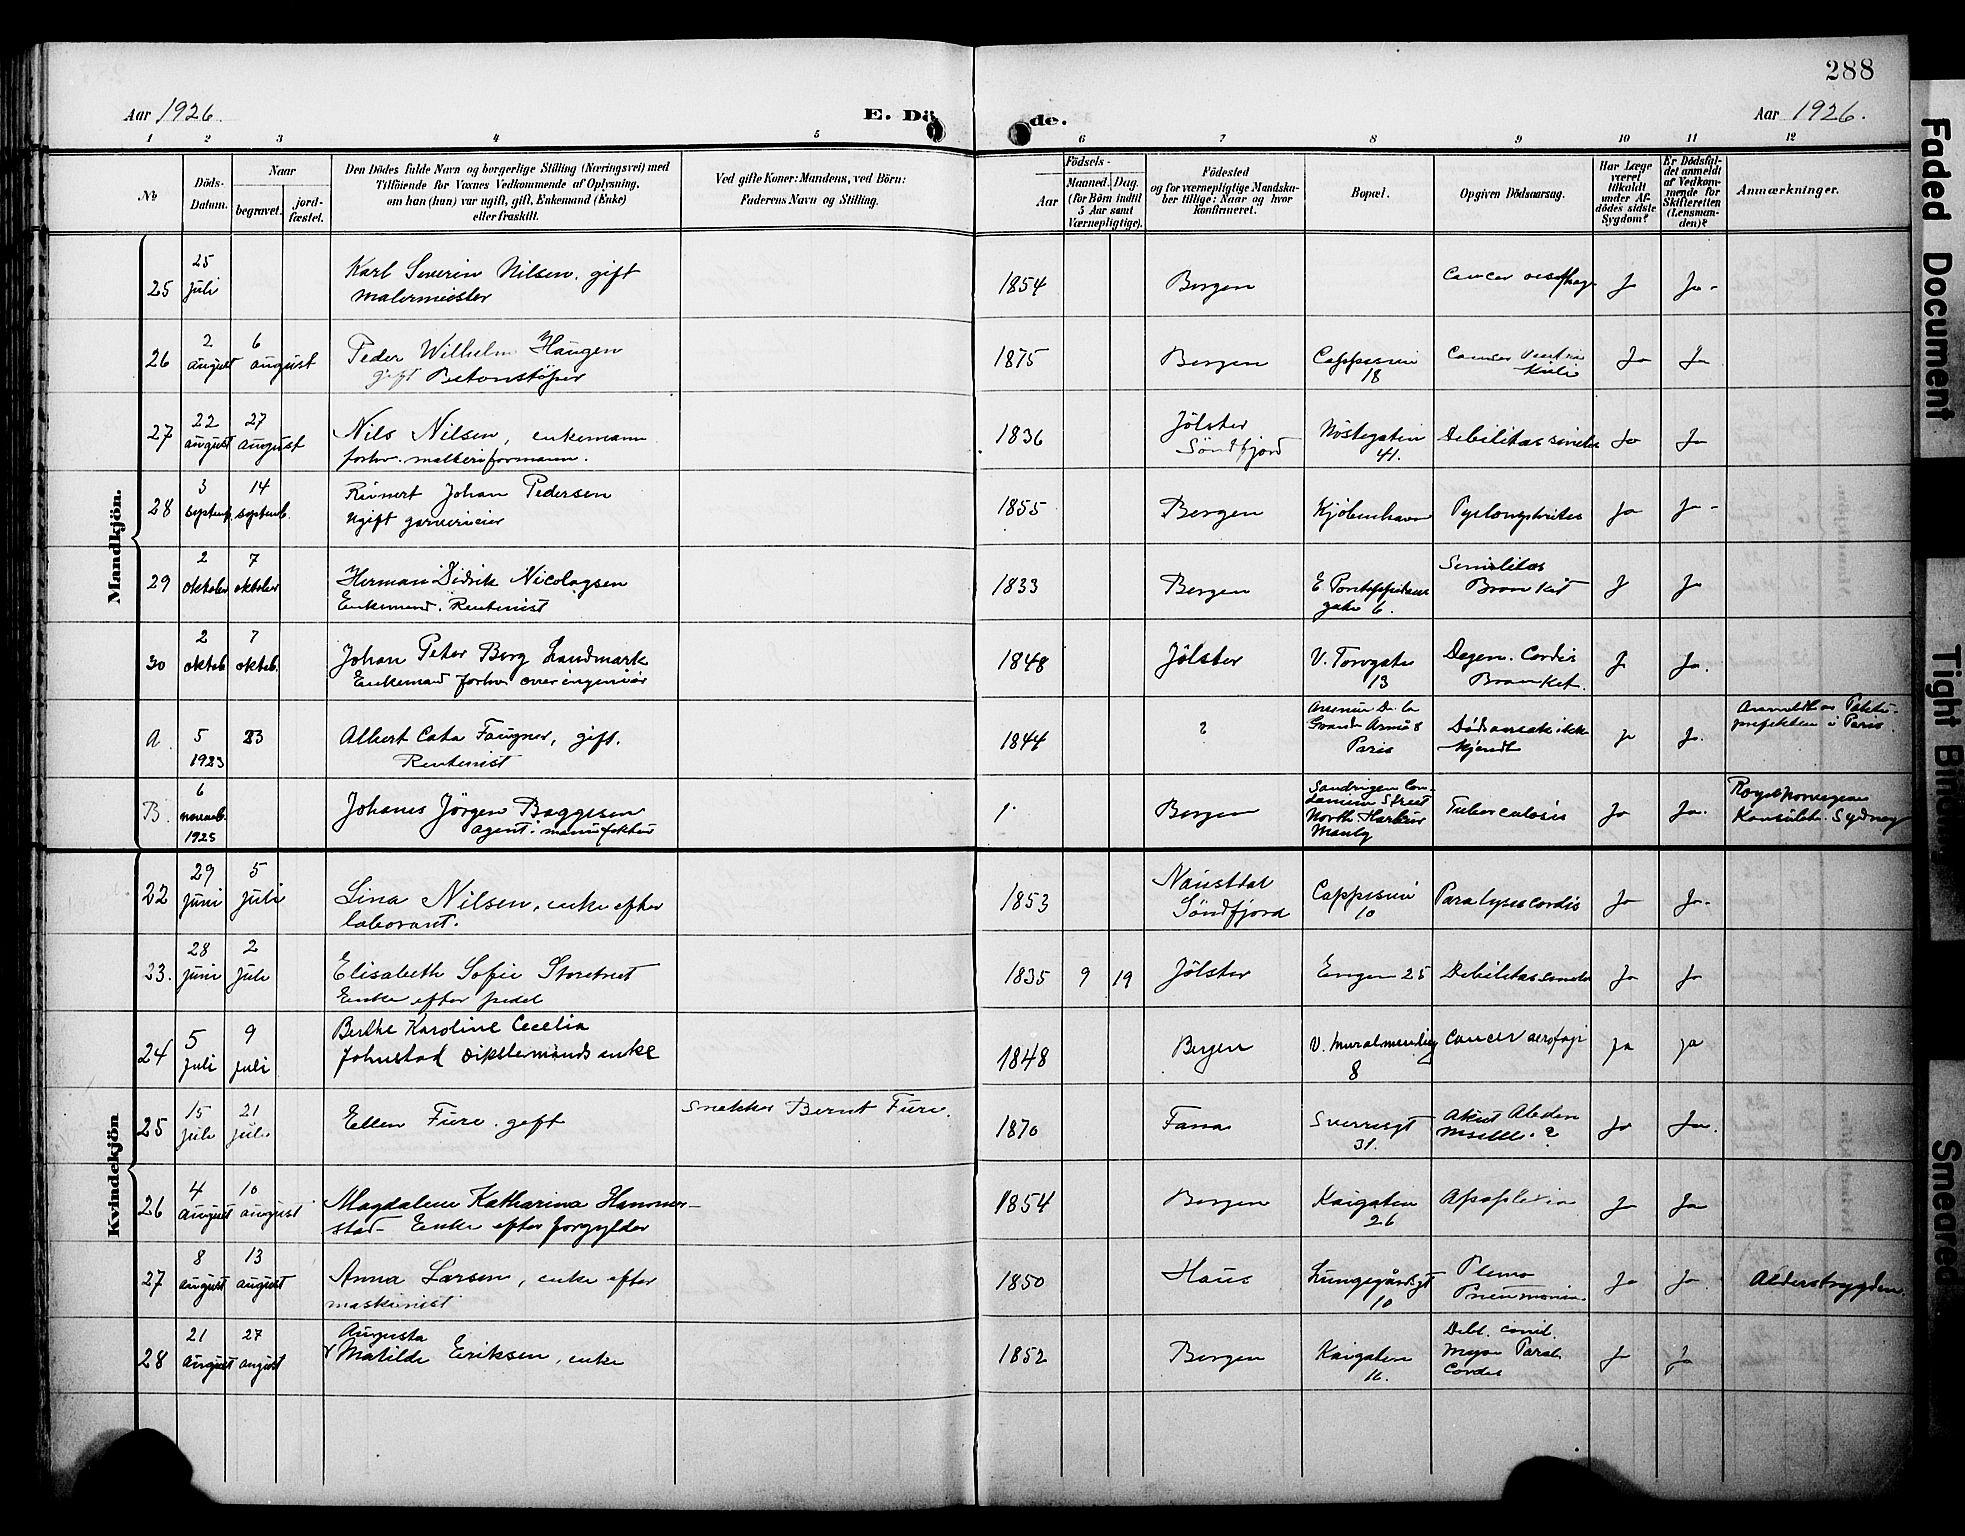 288
Aar 1926.
E. Dö
de.
Aar 1926.
1 2 3 4 5 6 7 8 9 10 11 12
No
Döds-
Datum.
Naar
begravet.
jord-
fæstet.
Den Dödes fulde Navn og borgerlige Stilling (Næringsvei) med
Tilföiende for Voxnes Vedkommende af Oplysning,
om han (hun) var ugift, gift, Enkemand (Enke)
eller fraskilt.
Ved gifte Koner: Mandens, ved Börn:
Faderens Navn og Stilling.
Födsels-
Aar
Maaned. Dag.
(for Börn indtil
5 Aar samt
Værnepligtige).
Födested
og for værnepligtige Mandska-
ber tillige: Naar og hvor
konfirmeret.
Bopæl.
Opgiven Dödsaarsag.
Har Læge
været
tilkaldt
under Af-
dödes sidste
Sygdom?
Er Dödsfal-
det anmeldt
af Vedkom-
mende for
Skifteretten
(Lensman-
den)?
Anmærkninger.
Mandkjön.
25
25
juli
Karl Severin Nilsen, gift
malermester
1854
Bergen
Cancer
Ja
Ja-
26
2
august
6
august
Peder Wilhelm Haugen
gift Betonstøper
1875
Bergen
18
Cancer
Ja
Ja
27
22
august
27
august
Nils Nilsen, enkemann
forhv. malteriformann.
1836
Jølster
Söndfjord
Nöstegaten
41.
Debilitas senilis
Ja
Ja
28
3
septemb.
14
septemb.
Reinert Johan Pedersen
ugift garvereier
1855
Bergen
Kjöbenhavn
Ja
Ja-
29
2
oktober
7
oktober
Herman Didrik Nicolaysen
Enkemand. Rentenist
1833
Bergen
E Pontoppidans
gate 6.
Senilitas
Bronkit
Ja
Ja
30
2
oktob.
7
oktob.
Johan Peter Berg Landmark
Enkemand forhv overingeniör
1848
Jölster
V. Torvgate
13
Degen. Cordis
Bronkit.
Ja
Ja.
A.
5
1923
23
Albert Cato Faugner, gift.
Rentenist
1844
?
Avenue De la
Grande Armé 8
Paris
Dödsaarsak ikke
kjendt
Ja
Ja.
Anmeldt av Politi-
prefekten i Paris
B.
6
novemb.
1925
Johanes Jörgen Baggesen
agent i manufaktur
1.
Bergen
Street
North Harbour
Manly
Tuberculosis
Ja
Ja.
Royal Norwegian
Konsulat. Sydney
Kvindekjön
22
29
juni
5
juli
Lina Nilsen, enke efter
laborant.
1853
Naustdal
Söndfjord
10
Paralyses cordis
Ja
Ja-
23.
28
juni
2
juli
Elisabeth Sofie Storetvet
Enke efter pedel
1835
9
19
Jølster
Engen 25
Debilitas senilis
Ja
Ja
24
5
juli
9
juli
Berthe Karoline Cecelia
Johnstad enke
1848
Bergen
V. Muralmending
8
Cancer
Ja
ja
25
15
juli
21
juli
Ellen Fure. gift
Snekker Bernt Fure.
1870
Fana
Sverresgt
31.
Ja
Ja.
26
4
august
10
august
Magdalene Katharina Hammer-
stad- Enke efter forgylder
1854
Bergen
Kaigaten
26
Apoplexia
Ja
Ja
27
8
august
13
august
Anna Larsen, enke efter
maskinist
1850
Haus
Lungegårdsgt
10
Pneumonia
Ja
Ja.
Alderstrygden.
28
21
august
27
august
Augusta
Matilde Eriksen, enke
1852
Bergen
Kaigaten
16.
Cordis
Ja
Ja
Faded Document
Tight Binding
Smeared